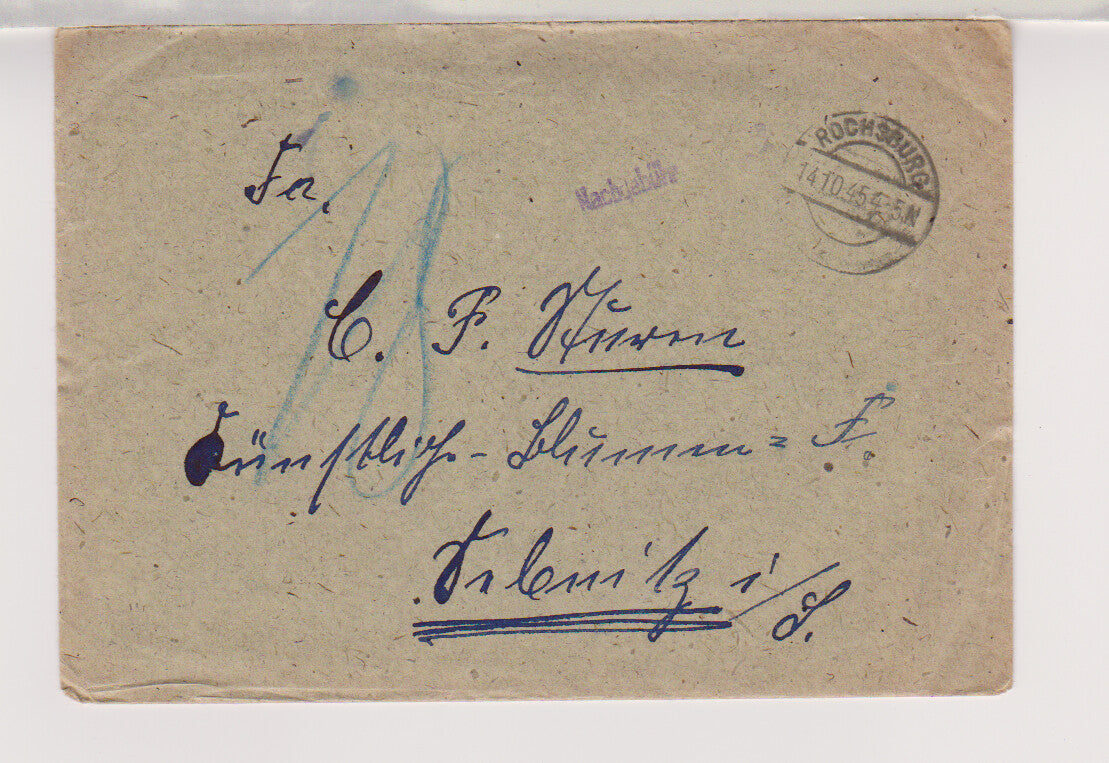 ROCHSBURG
14.10.45.4-5N
Nachgebühr
18
Fa.
C. F. Sturm
Künstliche-Blumen= F.
Sebnitz i/S.